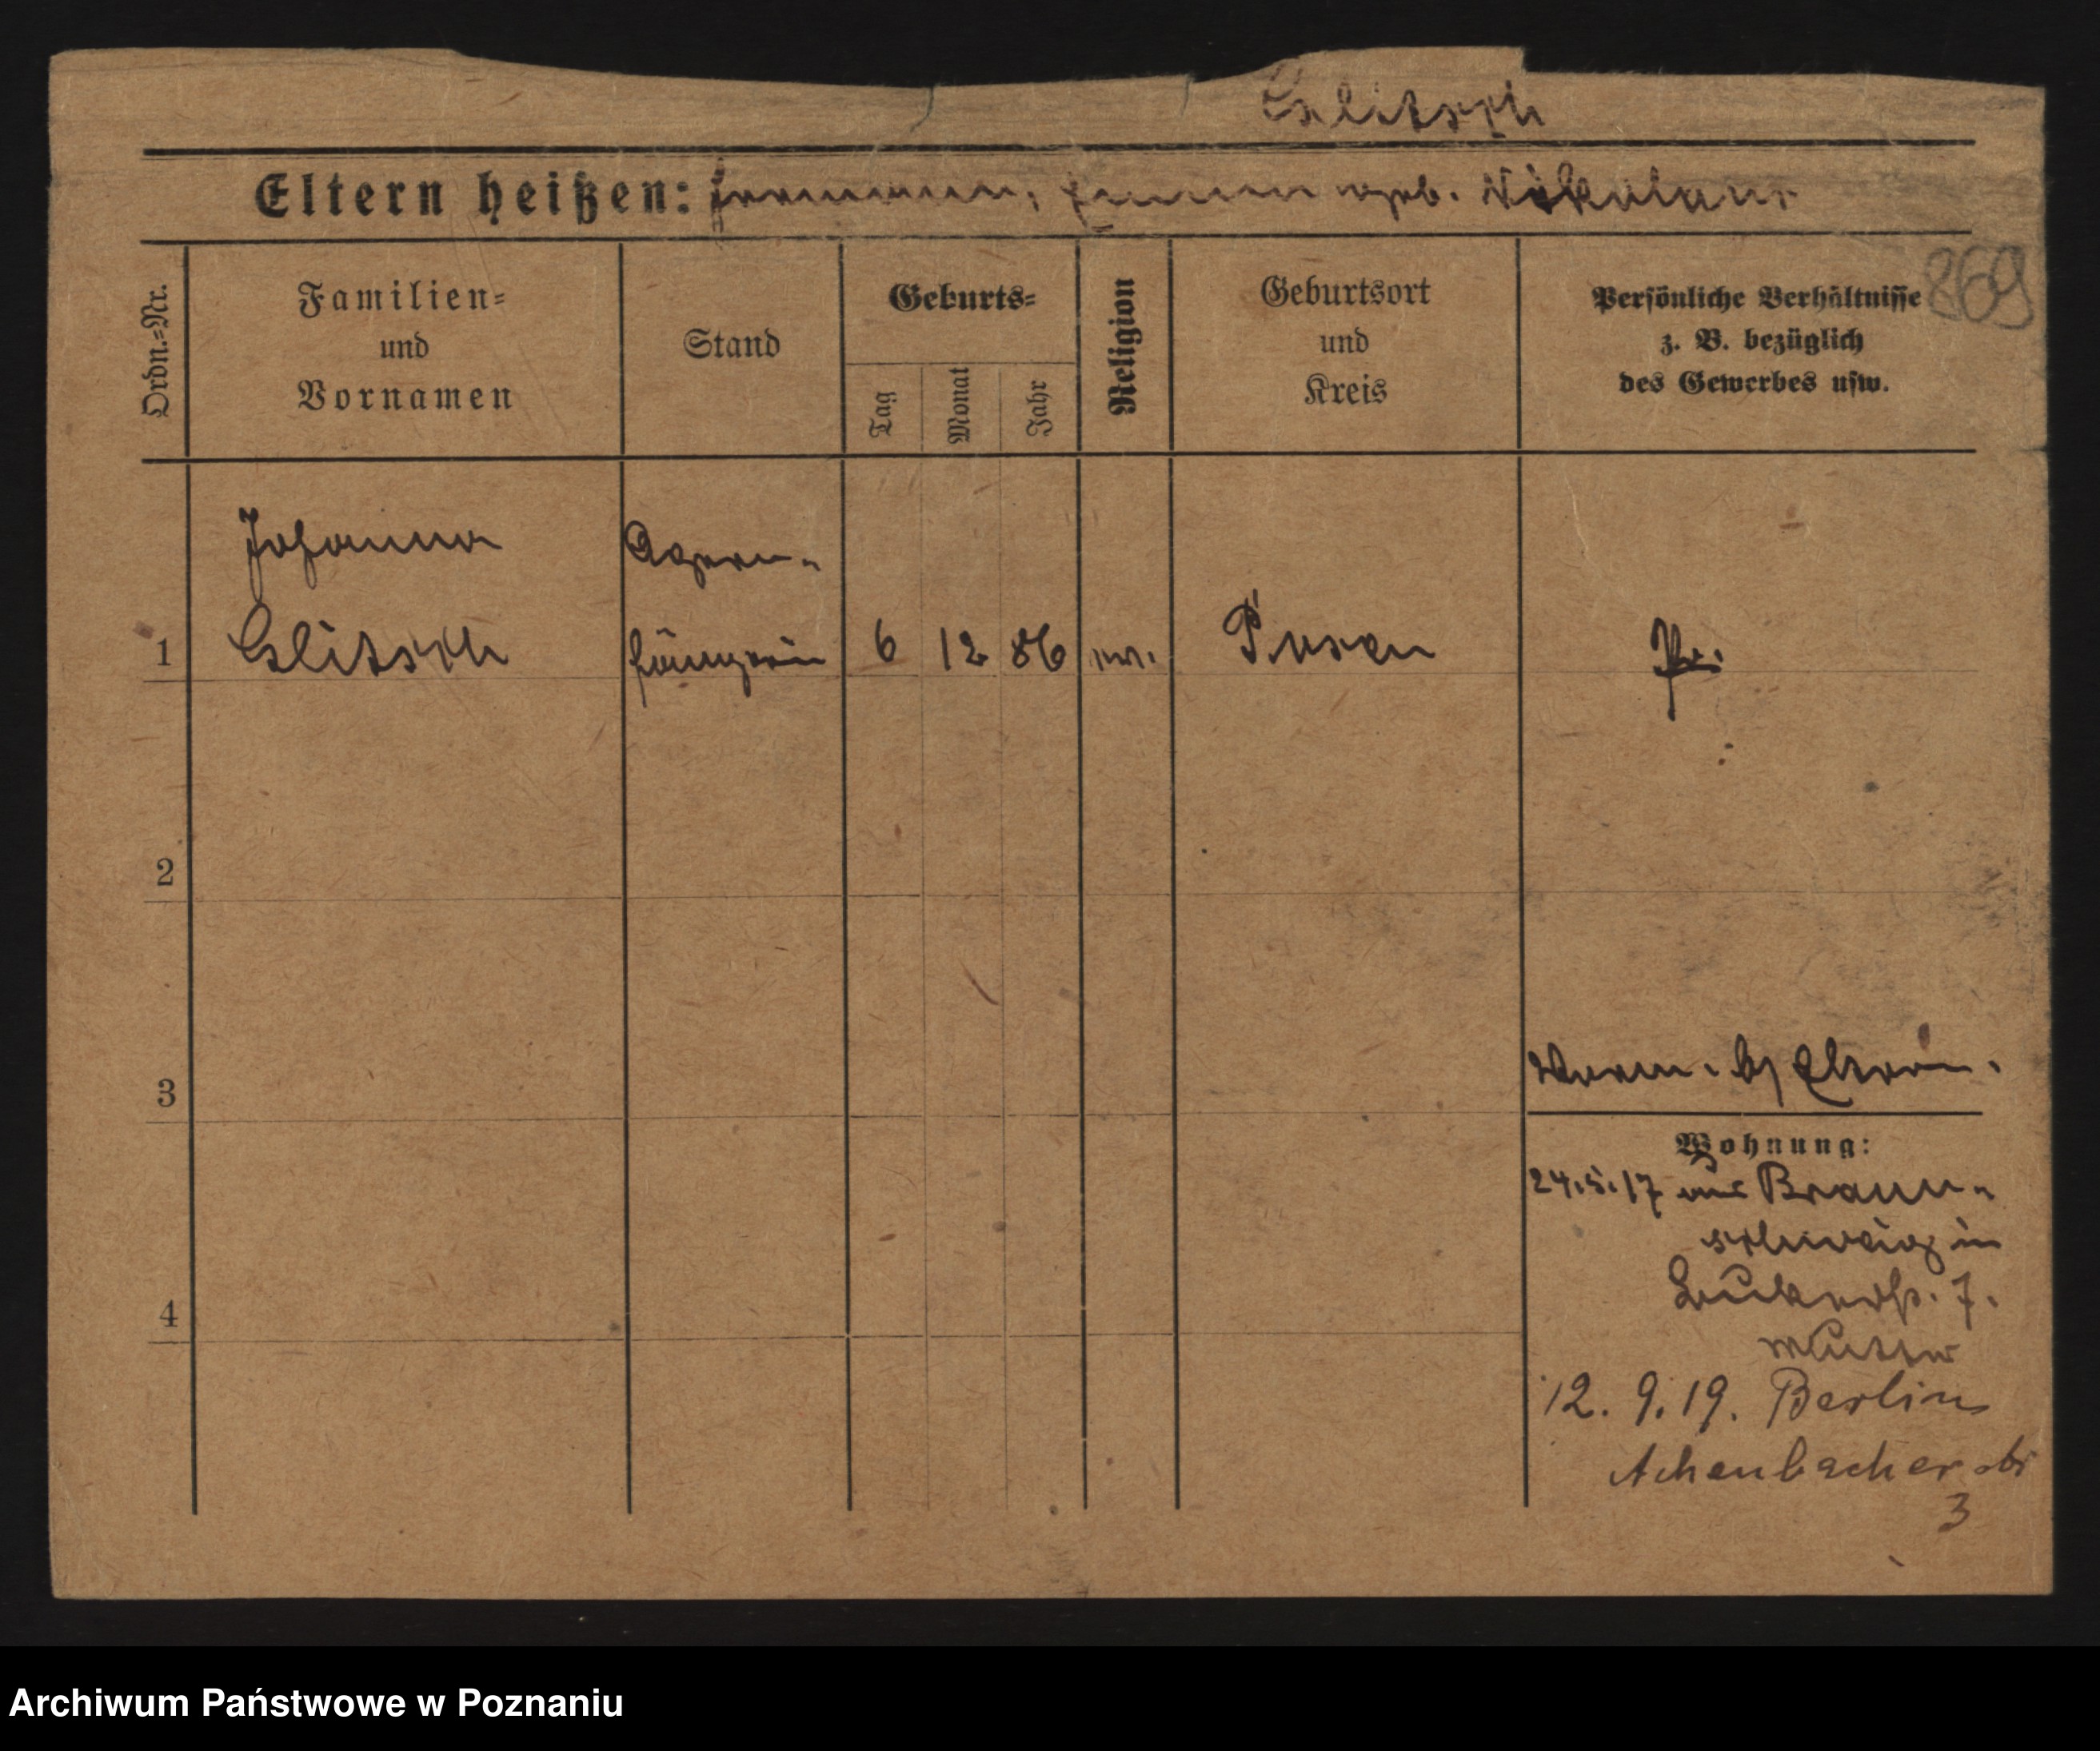 Glitsch
Eltern heißen: Hermann, Emma geb. Nikolaus
869
Ordn.=Nr.
Familien=
und
Vornamen
Stand
Geburts=
Tag
Monat
Jahr
Religion
Geburtsort
und
Kreis
Persönliche Verhältnisse
z. B. bezüglich
des Gewerbes usw.
Johanna
Opern-
1 Glitsch sängerin 6 12 86 ev. Posen Pr.
2
3
Eltern.
Wohnung:
24.5.17 aus Braun-
schweig in
7.
Mutter
12. 9. 19. Berlin
Achenbacher str
3
4
Archiwum Państwowe w Poznaniu